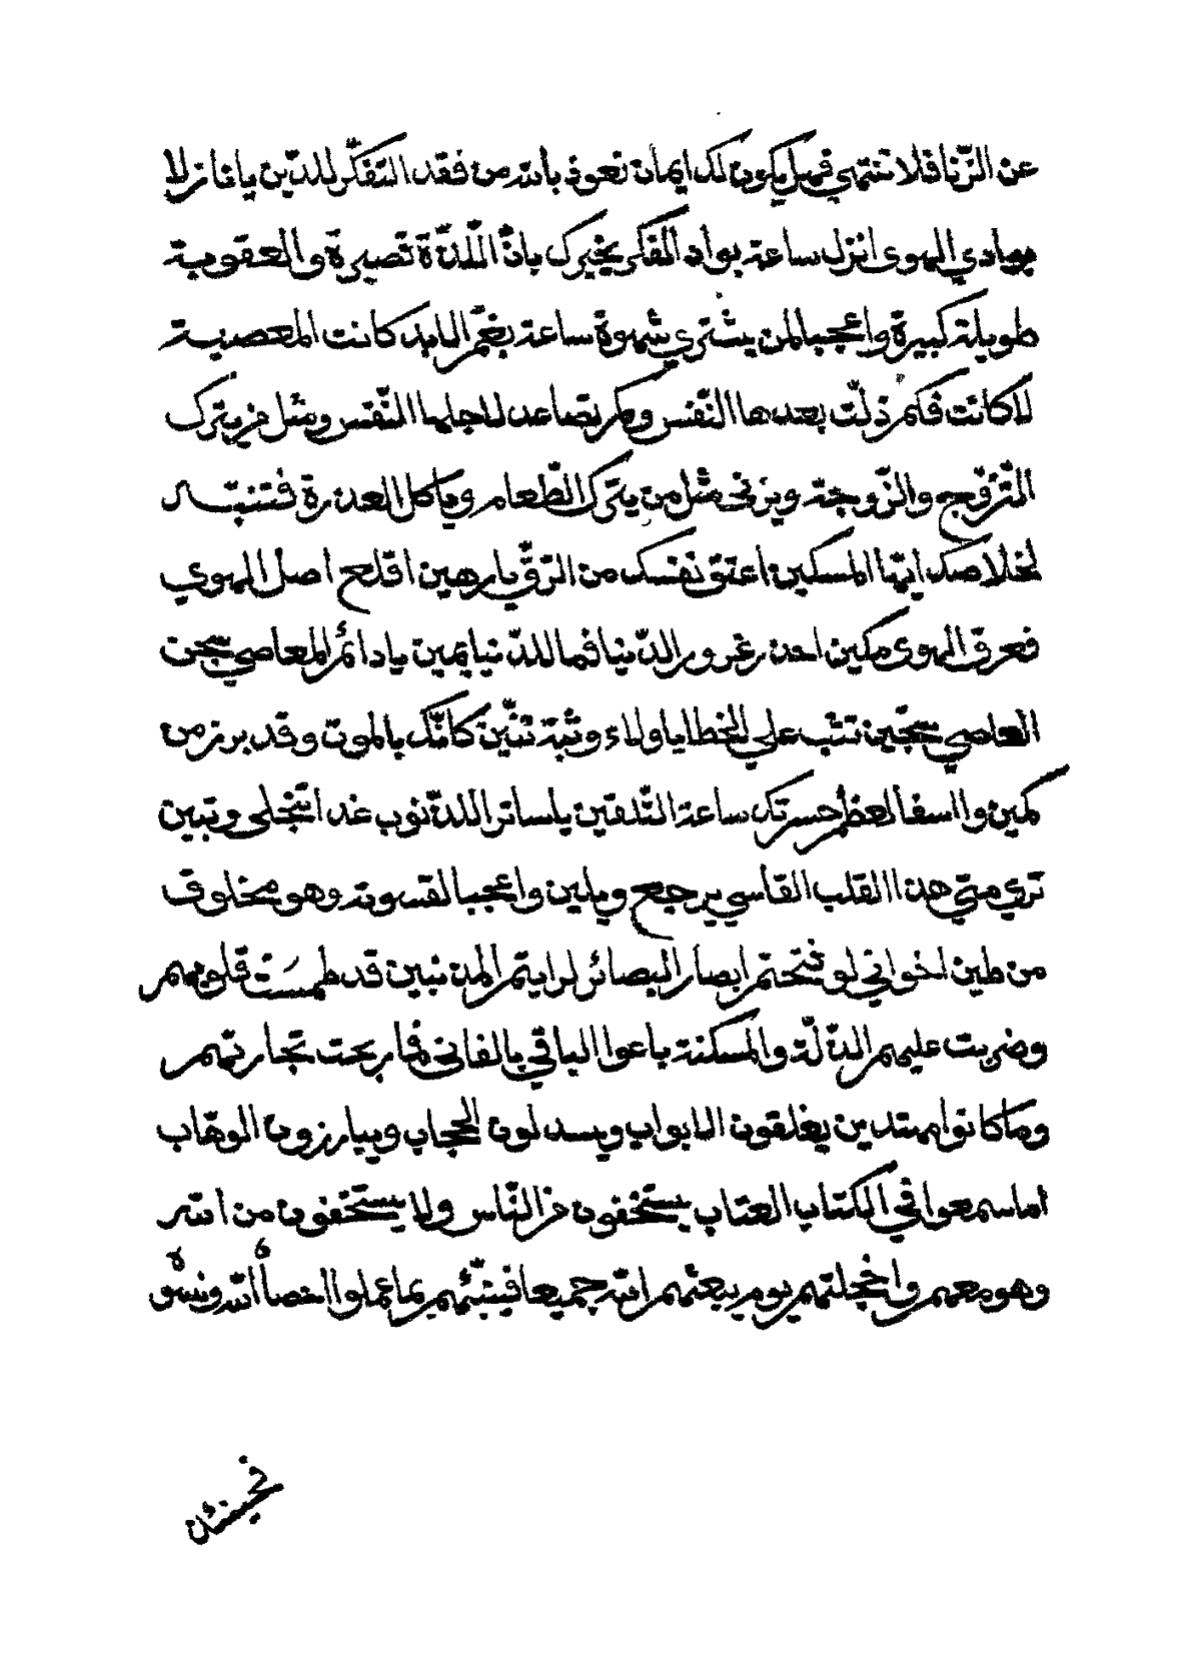 عن الزّنا فلا تنتهي فهل يكون لك ايمان نعوذ بالله من فقد التفكّر للدّين يا نازلا
بوادي الهوى انزل ساعة بواد الفكر يخبرك بانّ اللّذّة قصيرة والعقوبة
طويلة كبيرة واعجبا لمن يشتري شهوة ساعة بغمّ الابد كانت المعصية
لا كانت فكم ذلّت بعدها النّفس وكم تصاعد لاجلها النّفس ومثل من يترك
التّزوّج والزّوجة ويزنى مثل من يترك الطّعام وياكل العذرة فتنبّه
لخلاصك ايّها المسكين اعتق نفسك من الرّقّ يا رهين اقلع اصل الهوي
فعرق الهوى مكين احذر غرور الدّنيا فما للدّنيا يمين يا دائم المعاصي سجن
العاصي سجّين تثب علي الخطايا ولاء وثبة تنّين كانّك بالموت وقد برز من
كمين واسفا لعظم حسرتك ساعة التّلقين يا ساتر الذّنوب غدا تتجلى وتبين
تري متي هذا القلب القاسي يرجع ويلين واعجبا لقسوته وهو مخلوق
من طين اخواني لو فتحتم ابصار البصائر لرايتم المذنبين قد طمست قلوبهم
وضربت عليهم الذّلّة والمسكنة باعوا الباقي بالفانى فما ربحت تجارتهم
وما كانوا مهتدين يغلقون الابواب ويسدلون الحجاب ويبارزون الوهّاب
اما سمعوا في الكتاب العتاب يستخفون من النّاس ولا يستخفون من الله
وهو معهم واخجلتهم يوم يبعثهم الله جميعا فينبّئهم بما عملوا احصاه الله ونسوه